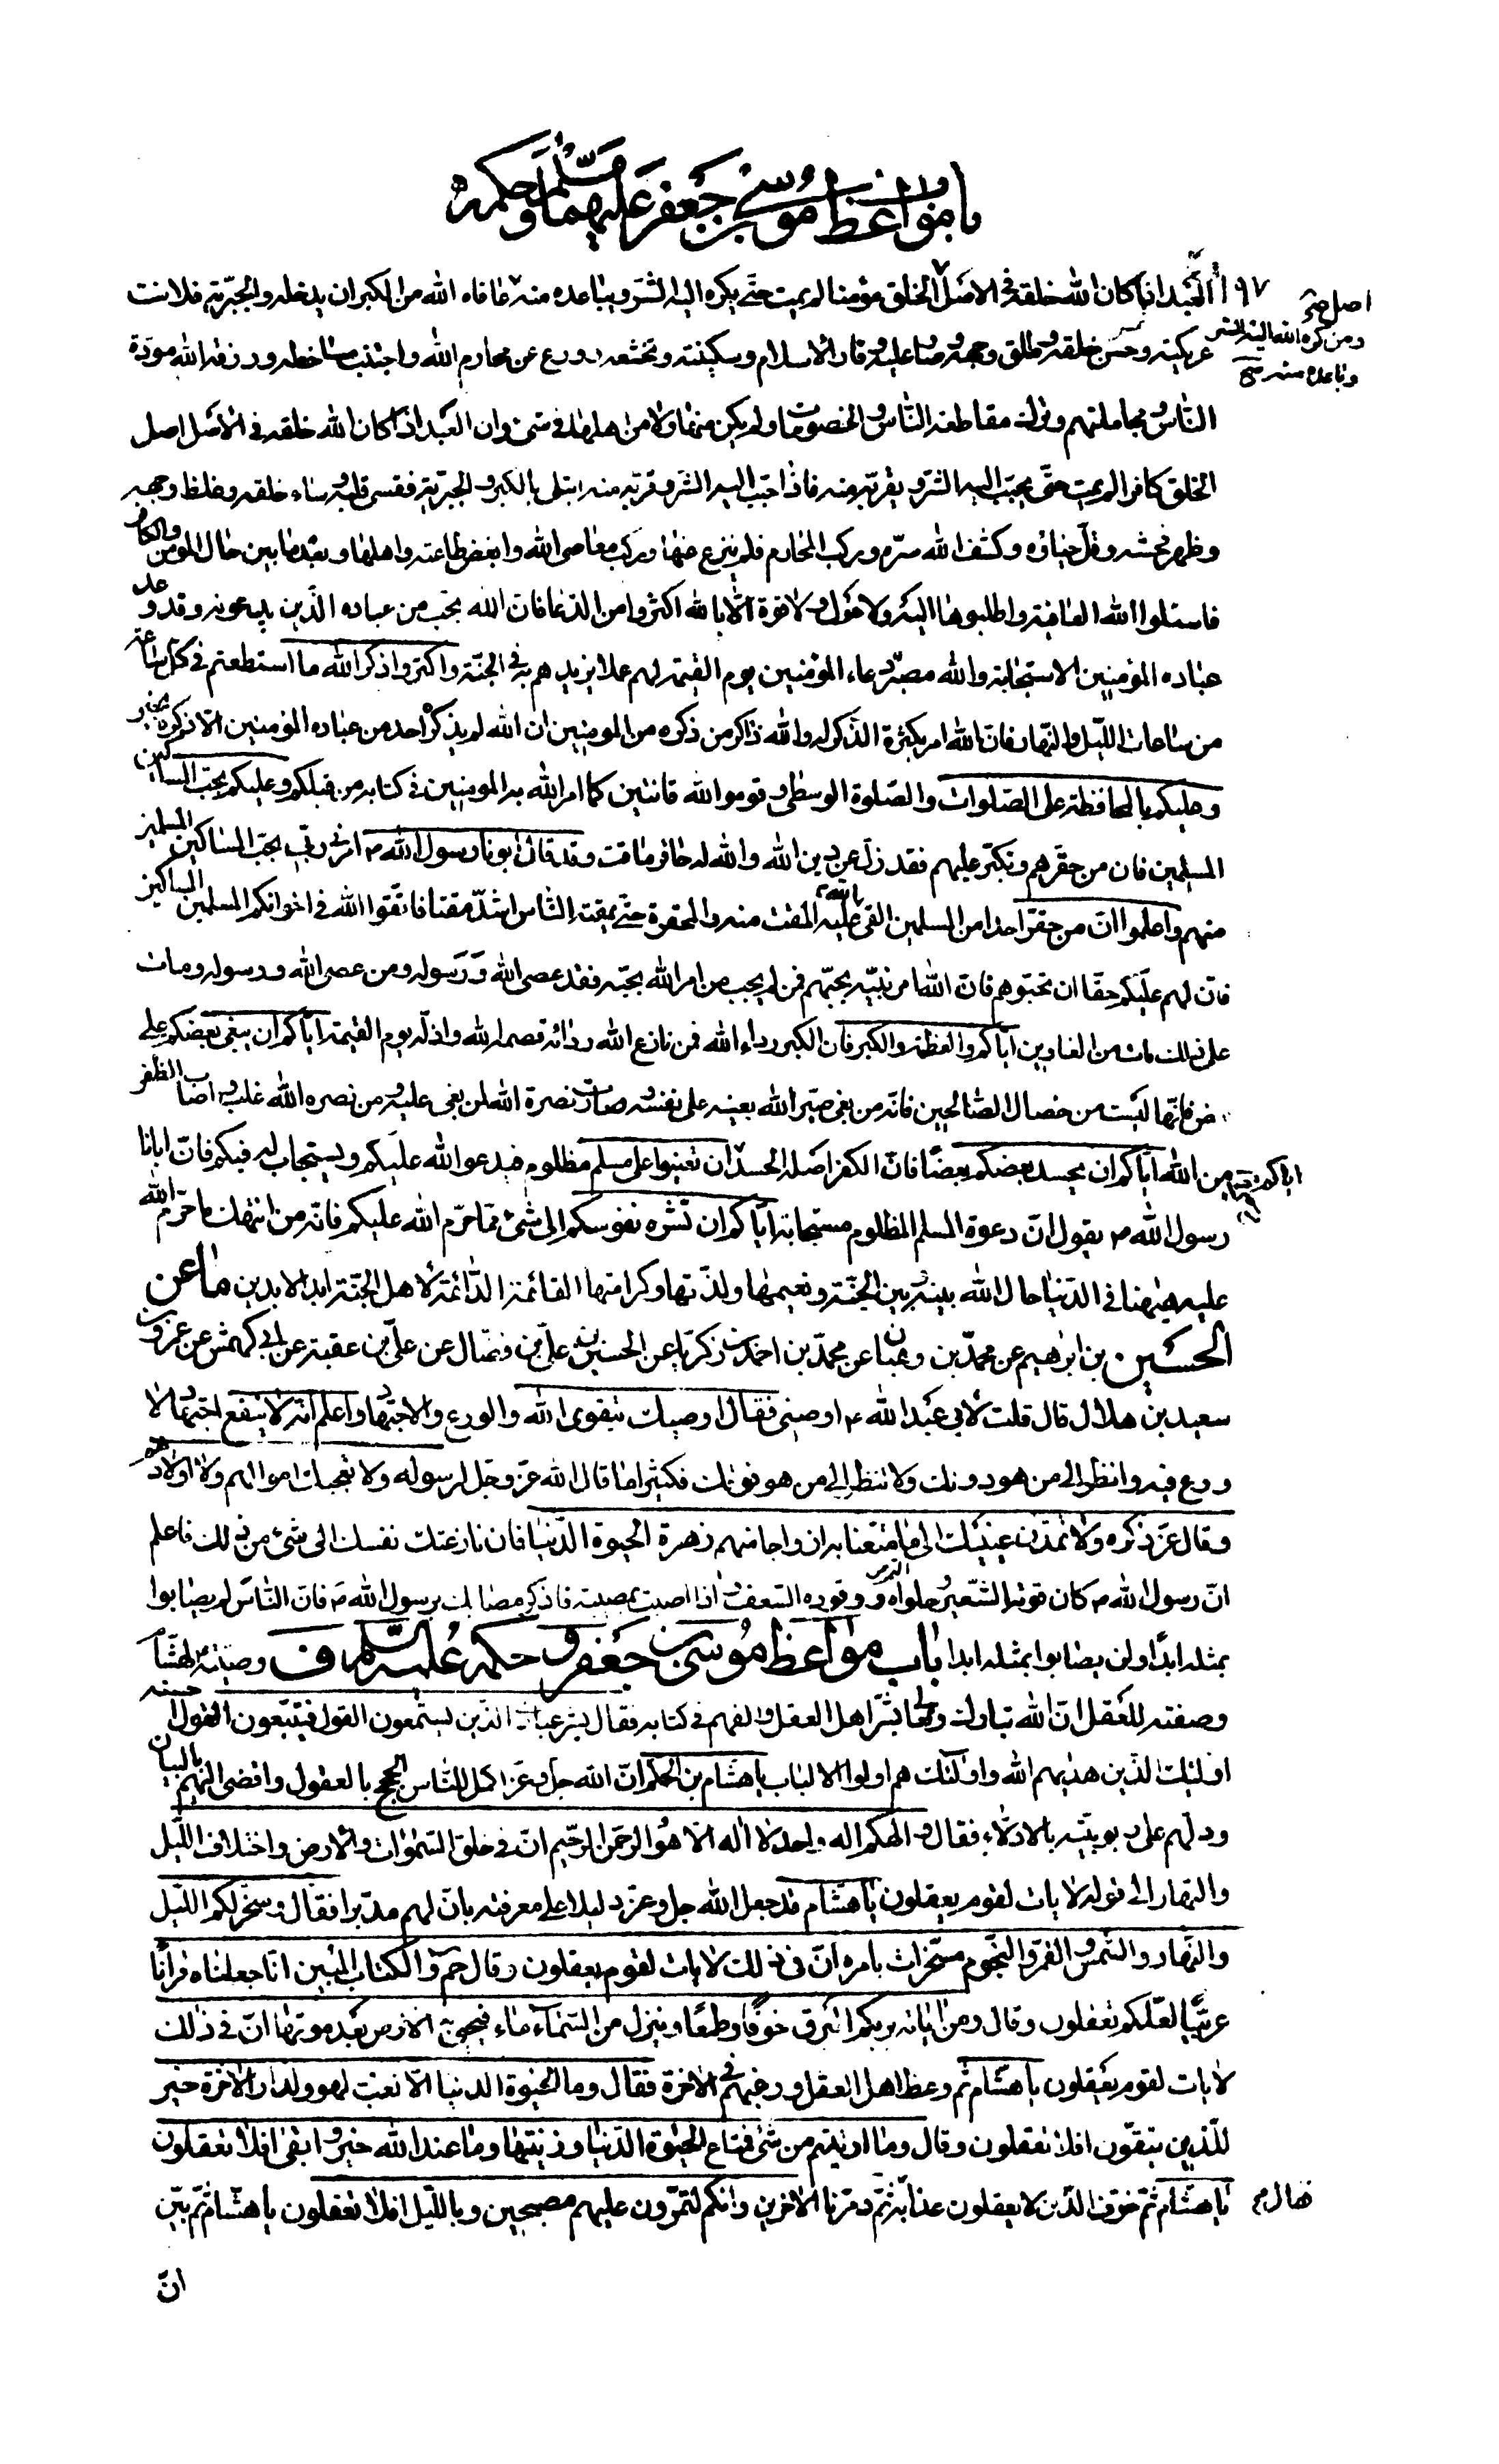 باب مواعظ موسى بن جعفر عليهما السلم وحكمه
١٩٧ ان العبد اذا كان الله خلقه فى الاصل اصل الخلق مؤمنا لم يمت حتى يكره اليه الشر ويباعده منه عافاه الله من الكبر ان يدخله والجبرية فلانت
اصل صح
ومن كره الله اليه الشر
وباعده منه صح
عريكته وحسن خلقه وطلق وجهه وصار عليه وقار الاسلام وسكينته وتخشعه وورع عن محارم الله واجتنب مساخطه ورزقه الله مودة
الناس ومجاملتهم وترك مقاطعة الناس والخصومات ولم يكن منها ولا من اهلها فى شئ وان العبد اذا كان الله خلقه فى الاصل اصل
الخلق كافرا لم يمت حتى يحبب اليه الشر ويقربه منه فاذا حبب اليه الشر وقربه منه ابتلى بالكبر والجبرية فقسى قلبه وساء خلقه وغلظ وجهه
وظهر فحشه وقل حياؤه وكشف الله سره وركب المحارم فلم ينزع عنها وركب معاصى الله وابغض طاعته واهلها وبعد ما بين حال المومن والكافر
فاسئلوا الله العافية واطلبوها اليه ولا حول ولا قوة الا بالله اكثروا من الدعا فان الله يحب من عباده الذين يدعونه وقد وعد
عباده المؤمنين الاستجابة والله مصير دعاء المؤمنين يوم القيمة لهم عملا يزيدهم به فى الجنة واكثروا ذكر الله ما استطعتم فى كل ساعة
من ساعات الليل والنهار فان الله امر بكثرة الذكر له والله ذاكر من ذكره من المومنين ان الله لم يذكره احد من عباده المؤمنين الا ذكره بخير
وعليكم بالمحافظة على الصلوات والصلوة الوسطى وقوموا لله قانتين كما امر الله به المومنين فى كتابه من قبلكم وعليكم بحب المساكين
المسلمين فان من حقرهم وتكبر عليهم فقد زل عن دين الله والله له حاقر ماقت وقد قال ابونا رسول الله ص امرنى ربى بحب المساكين المسلمين
منهم واعلموا ان من حقر احدا من المسلمين القى الله عليه المقت منه والمحقرة حتى يمقته الناس اشد مقتا فاتقوا الله فى اخوانكم المسلمين المساكين
فان لهم عليكم حقا ان تحبوهم فان الله امر نبيه بحبهم فمن لم يحب من امر الله بحبه فقد عصى الله ورسوله ومن عصى الله ورسوله ومات
على ذلك مات من الغاوين اياكم والعظمة والكبر فان الكبر رداء الله فمن نازع الله ردائه قصمه الله واذله يوم القيمة اياكم ان يبغى بعضكم على
بعض فانها ليست من خصال الصالحين فانه من بغى صير الله بغيه على نفسه وصارت نصرة الله لمن بغى عليه ومن نصره الله غلب واصاب الظفر
من الله اياكم ان يحسد بعضكم بعضا فان الكفر اصله الحسد ان تعينوا على مسلم مظلوم فيدعو الله عليكم ويستجاب له فيكم فان ابانا
اياكم
رسول الله ص يقول ان دعوة المسلم المظلوم مستجابة اياكم ان تشره نفوسكم الى شئ مما حرم الله عليكم فانه من انتهك ما حرم الله
عليه هيهنا فى الدنيا حال الله بينه وبين الجنة ونعيمها ولذتها وكرامتها القائمة الدائمة لاهل الجنة ابد الابدين ما عن
الحسين بن ابرهيم عن محمد بن وهبان عن محمد بن احمد بن زكريا عن الحسن بن على بن فضال عن على بن عقبة عن ابى كهمش عن عمرو بن
سعيد بن هلال قال قلت لابى عبد الله ع اوصنى فقال اوصيك بتقوى الله والورع والاجتهاد واعلم انه لا ينفع اجتهاد لا
ورع فيه وانظر الى من هو دونك ولا تنظر الى من هو فوقك فكثيرا ما قال الله عز وجل لرسوله ولا تعجبك اموالهم ولا اولادهم
وقال عز ذكره ولا تمدن عينيك الى ما متعنا به ازواجا منهم زهرة الحيوة الدنيا فان نازعتك نفسك الى شئ من ذلك فاعلم
ان رسول الله ص كان قوته الشعير وحلواه التمر ووقوده السعف واذا اصبت بمصيبة فاذكر مصابك برسول الله ص فان الناس لم يصابوا
بمثله ابدا ولن يصابوا بمثله ابدا باب مواعظ موسى بن جعفر وحكمه عليه السلم ف وصيته ع لهشام
وصفته للعقل ان الله تبارك وتعالى بشر اهل العقل والفهم فى كتابه فقال فبشر عباد الذين يستمعون القول فيتبعون القول احسنه
اولئك الذين هديهم الله واولئك هم اولوا الالباب يا هشام بن الحكم ان الله جل وعز اكمل للناس الحجج بالعقول وافضى اليهم بالبيان
ودلهم على ربوبيته بالادلاء فقال والهكم اله واحد لا اله الا هو الرحمن الرحيم ان فى خلق السموات والارض واختلاف الليل
والنهار الى قوله لايات لقوم يعقلون يا هشام قد جعل الله جل وعز دليلا على معرفته بان لهم مدبرا فقال وسخر لكم الليل
والنهار والشمس والقمر والنجوم مسخرات بامره ان فى ذلك لايات لقوم يعقلون وقال حم والكتاب المبين انا جعلناه قرآنا
عربيا لعلكم تعقلون وقال ومن اياته يريكم البرق خوفا وطمعا وينزل من السماء ماء فيحيى به الارض بعد موتها ان فى ذلك
لايات لقوم يعقلون يا هشام ثم وعظ اهل العقل ورغبهم فى الاخرة فقال وما الحيوة الدنيا الا لعب ولهو ولدار الاخرة خير
للذين يتقون افلا تعقلون وقال وما اوتيتم من شئ فمتاع الحيوة الدنيا وزينتها وما عند الله خير وابقى افلا تعقلون
يا هشام ثم خوف الذين لا يعقلون عذابه ثم دمرنا الاخرين وانكم لتمرون عليهم مصبحين وبالليل افلا تعقلون يا هشام ثم بين
ان